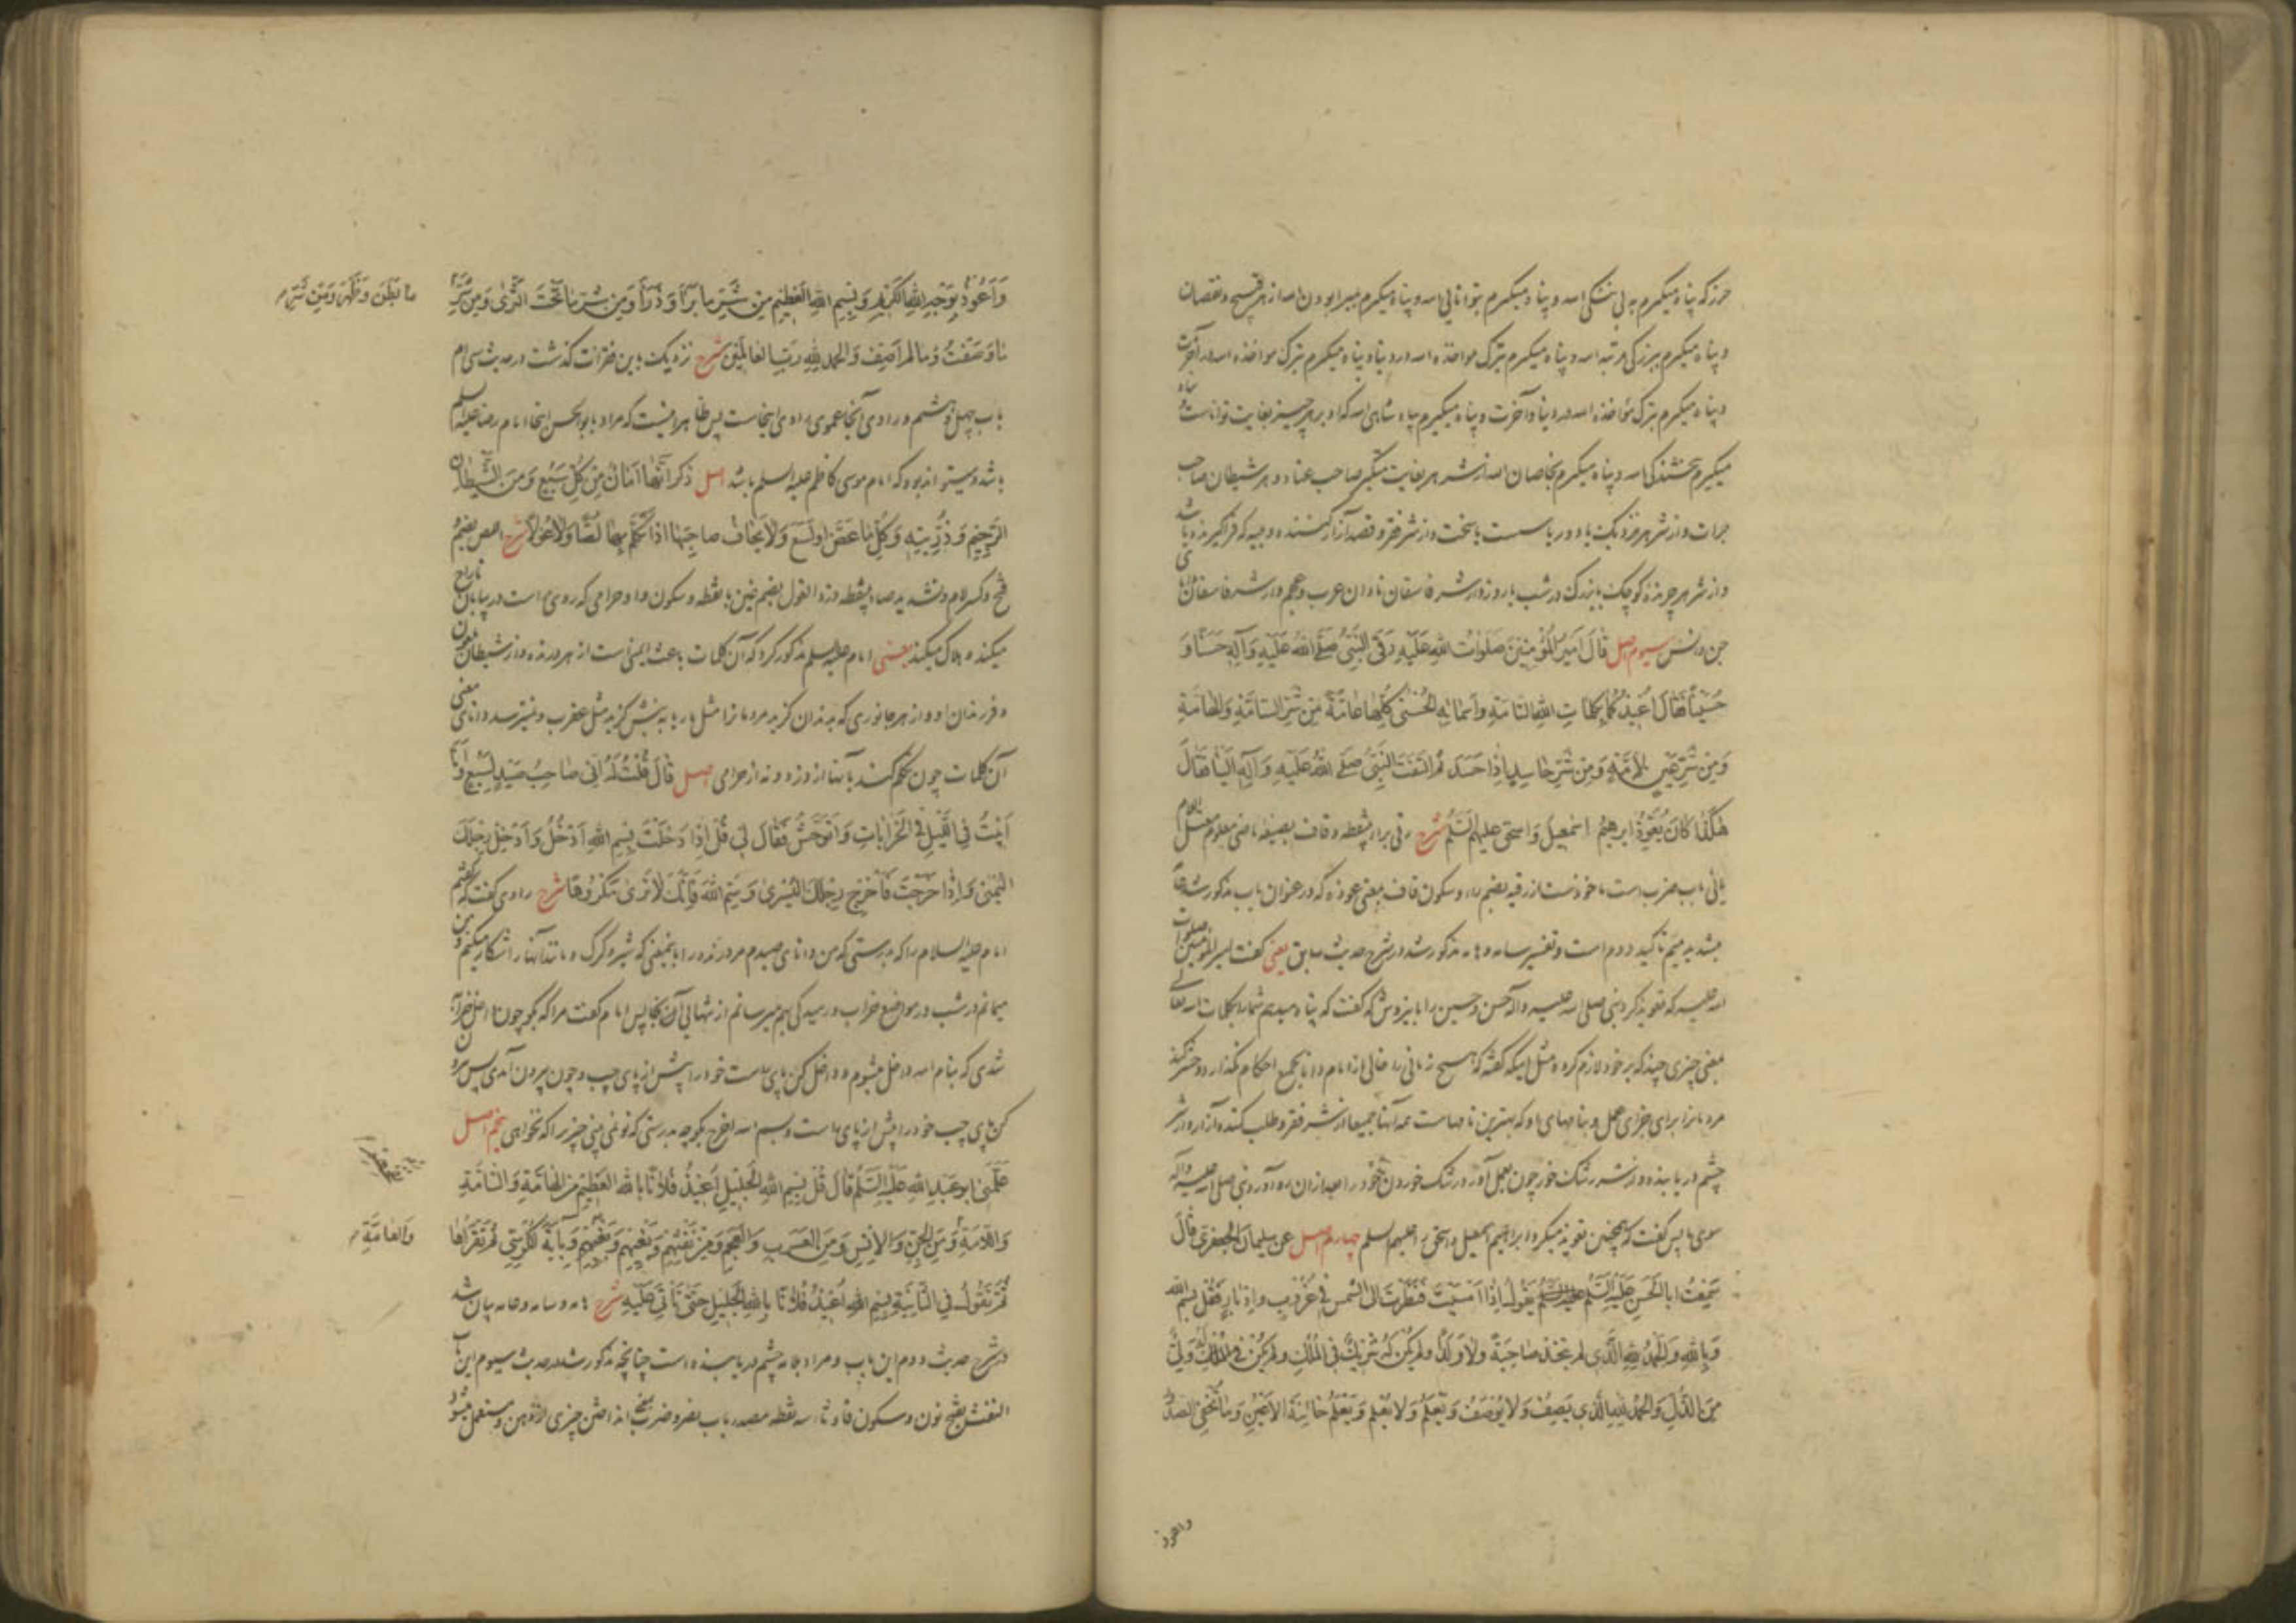 حرز که پناه میکیرم به بی ننکی الله و پناه میکیرم بتوانایی الله و پناه میکیرم بمبرا بودن الله از هر قبیح و نقصان
و پناه میکیرم ببزرکی مرتبه الله و پناه میکیرم بترک مواخذه الله در دنیا و پناه میکیرم بترک مواخذه الله در آخرت
و پناه میکیرم بترک مؤاخذه الله در دنیا و آخرت و پناه میکیرم بپادشاهی الله که او بر هر چیز بغایت تواناست و پناه
میکیرم ببخشندکی الله و پناه میکیرم بخاصان الله از شر هر بغایت متکبر صاحب عناد و هر شیطان صاحب
جرات و از شر هر نزدیک یا دور یا سست یا سخت و از شر
و از شر هر چرنده کوچک یا بزرک در شب یا روز و از شر فاسقان نادان عرب و عجم و از شر فاسقان
جن و انس سیوم اصل قَالَ اَمیرُ المُؤْمِنینَ صَلَوٰاتُ اللهِ عَلَیْهِ رَقَی النَّبِیُّ صَلَّی اللهُ عَلَیْهِ وَآلِهِ حَسَنًا وَ
حُسَیْنًا فَقَالَ اُعیذُکُمٰا بِکَلِمٰاتِ اللهِ التّٰامَّةِ وَاَسْمٰائِهِ الْحُسْنیٰ کُلِّهٰا عٰامَّةً مِنْ شَرِّ السّٰامَّةِ وَالهٰامَّةِ
وَمِنْ شَرِّ عَیْنٍ لاٰمَّةٍ وَمِنْ شَرِّ حٰاسِدٍ اِذٰا حَسَدَ ثُمَّ الْتَفَتَ النَّبِیُّ صَلَّی اللهُ عَلَیْهِ وَآلِهِ اِلَیْنٰا فَقٰالَ
هٰکَذٰا کٰانَ یُعَوِّذُ اِبرهیمُ اِسْمٰعیلَ وَاِسْحٰقَ عَلَیْهِمُ السَّلَمُ شرح رقی براء بینقطه و قاف بصیغه ماضی معلوم معتل اللام
یائی باب ضرب است ماخوذست از رقیه بضم راء و سکون قاف بمعنی عوذه که در عنوان باب مذکور شد عامة
بتشدید میم تاکید دوم است و تفسیر سامه و هامه مذکور شد در شرح حدیث سابق یعنی کفت امیر المؤمنین صلوات
الله علیه که تعویذ کرد نبی صلی الله علیه وآله حسن و حسین را باین روش که کفت که پناه میدهم شما را بکلمات الله تعالی
یعنی چیزی چند که بر خود لازم کرده مثل اینکه کفته که هیچ زمانی را خالی از امام دانا بجمیع احکام نکذارد و حشر کند
مردمانرا برای جزای عمل و بنامهای او که بهترین نامهاست همه آنها جمیعا از شر
چشم دریابنده و از شر رشک خور چون بعمل آورد رشک خوردن خود را بعد از آن رو آورد نبی صلی الله علیه وآله
سوی ما پس کفت که همچنین تعویذ میکرد ابراهیم اسمعیل و اسحق را علیهم السلم چهارم اصل عَن سُلیمٰانَ الجَعْفَرِیِّ قٰالَ
سَمِعْتُ اَبَا الْحَسَنِ عَلَیْهِ السَّلَمُ یَقُولُ اِذٰا اَمْسَیْتَ فَنَظَرْتَ اِلَی الشَّمْسِ فی غُرُوبٍ وَاِدْبٰارٍ فَقُلْ بِسْمِ اللهِ
وَبِاللهِ وَالْحَمْدُ لِلّٰهِ الَّذی لَمْ یَتَّخِذْ صٰاحِبَةً وَلاٰ وَلَدًا وَلَمْ یَکُنْ لَهُ شَرِیکٌ فِی الْمُلْکِ وَلَمْ یَکُنْ لَهُ وَلِیٌّ
مِنَ الذُّلِّ وَالْحَمْدُ لِلّٰهِ الَّذی یَصِفُ وَلاٰ یُوصَفُ وَیَعْلَمُ وَلاٰ یُعْلَمُ یَعْلَمُ خٰائِنَةَ الاَعْیُنِ وَمٰا تُخْفِی الصُّدُورُ
واعوذ
وَاَعُوذُ بِوَجْهِ اللهِ الْکَرِیمِ وَبِسْمِ اللهِ الْعَظِیمِ مِنْ شَرِّ مٰا بَرَأَ وَذَرَأَ وَمِنْ شَرِّ مٰا تَحْتَ الثَّرىٰ وَمِنْ شَرِّ
مٰا بَطَنَ وَظَهَرَ وَمِنْ شَرِّ
مٰا وَصَفْتُ وَمٰا لَمْ اَصِفْ وَالْحَمْدُ لِلّٰهِ رَبِّ الْعٰالَمِینَ شرح نزدیک باین فقرات کذشت در حدیث سی ام
باب چهل و هشتم و راوی آنجا عموی راوی اینجاست پس ظاهر اینست که مراد بابو الحسن اینجا امام رضا علیه السلم
باشد و میتواند بود که امام موسی کاظم علیه السلم باشد اصل ذکر اَنَّهٰا اَمٰانٌ مِنْ کُلِّ سَبُعٍ وَمِنَ الشَّیْطٰانِ
الرَّجِیمِ وَذُرِّیَّتِهِ وَکُلِّ مٰا عَضَّ اَوْ لَسَعَ وَلاٰ یَخٰافُ صٰاحِبُهٰا اِذٰا تَکَلَّمَ بِهٰا لِصًّا وَلاٰ غُولاً شرح اللص بضم و
فتح و کسر لام و تشدید صاد بینقطه دزد الغول بضم غین با نقطه و سکون واو حرامی که روی است در بیابان تاراج
میکند و هلاک میکند یعنی امام علیه السلم مذکور کرد که آن کلمات باعث ایمنی است از هر درنده و از شیطان ملعون
و فرزندان او و از هر جانوری که بدندان کزید مردمانرا مثل مار یا به نیش کزید مثل عقرب و نمیترسد دانای معنی
آن کلمات چون تکلم کند بآنها از دزد و نه از حرامی اصل قٰالَ قُلْتُ لَهُ اِنّی صٰاحِبُ صَیْدِ السَّبُعِ وَاَنٰا
اَبِیتُ فِی اللَّیْلِ فِی الْخَرٰابٰاتِ وَاَتَوَحَّشُ فَقٰالَ لی قُلْ اِذٰا دَخَلْتَ بِسْمِ اللهِ اَدْخُلُ وَاَدْخِلْ رِجْلَکَ
الیُمْنیٰ وَاِذٰا خَرَجْتَ فَاَخْرِجْ رِجْلَکَ الْیُسْریٰ وَسَمِّ اللهَ فَاِنَّکَ لاٰ تَریٰ مَکْرُوهًا شرح راوی کفت که کفتم
امام علیه السلام را که بدرستی که من دانای صیدم هر درنده را باینمعنی که شیر و کرک و مانند آنها را شکار میکنم و من
میمانم در شب در مواضع خراب و رمیدکی بهم میرسانم از تنهایی آن کجا پس امام کفت مرا که بکو چون داخل خرابه
شدی که بنام الله داخل میشوم و داخل کن پای راست خود را پیش از پای چپ و چون بیرون آمدی پس بیرون
کن پای چپ خود را پیش از پای راست و بسم الله اخرج بکو چه بدرستی که تو نمی بینی چیزی را که نخواهی پنجم اصل
عَلَّمَنی اَبُو عَبْدِ اللهِ عَلَیْهِ السَّلَمُ قٰالَ قُلْ بِسْمِ اللهِ الْجَلِیلِ اُعِیذُ فُلاٰنًا بِاللهِ الْعَظِیمِ مِنَ الْهٰامَّةِ وَالسّٰامَّةِ
وَاللاّٰمَّةِ وَمِنَ الْجِنِّ وَالاِنْسِ وَمِنَ الْعَرَبِ وَالْعَجَمِ وَمِنْ نَفْثِهِمْ وَبَغْیِهِمْ وَنَفْخِهِمْ وَبِآیَةِ الْکُرْسِیِّ ثُمَّ تَقْرَأُهٰا
وَالعٰامَّةِ
ثُمَّ تَقُولُ فِی الثّٰانِیَةِ بِسْمِ اللهِ اُعِیذُ فُلاٰنًا بِاللهِ الْجَلِیلِ حَتّیٰ تَأْتِیَ عَلَیْهِ شرح هامه و سامه و عامه بیان شد
در شرح حدیث دوم این باب و مراد بلامه چشم دریابنده است چنانچه مذکور شد در حدیث سیوم این باب
النفث بفتح نون و سکون فا و ثاء سه نقطه مصدر باب نصر و ضرب انداختن چیزی از دهن و مستعمل میشود